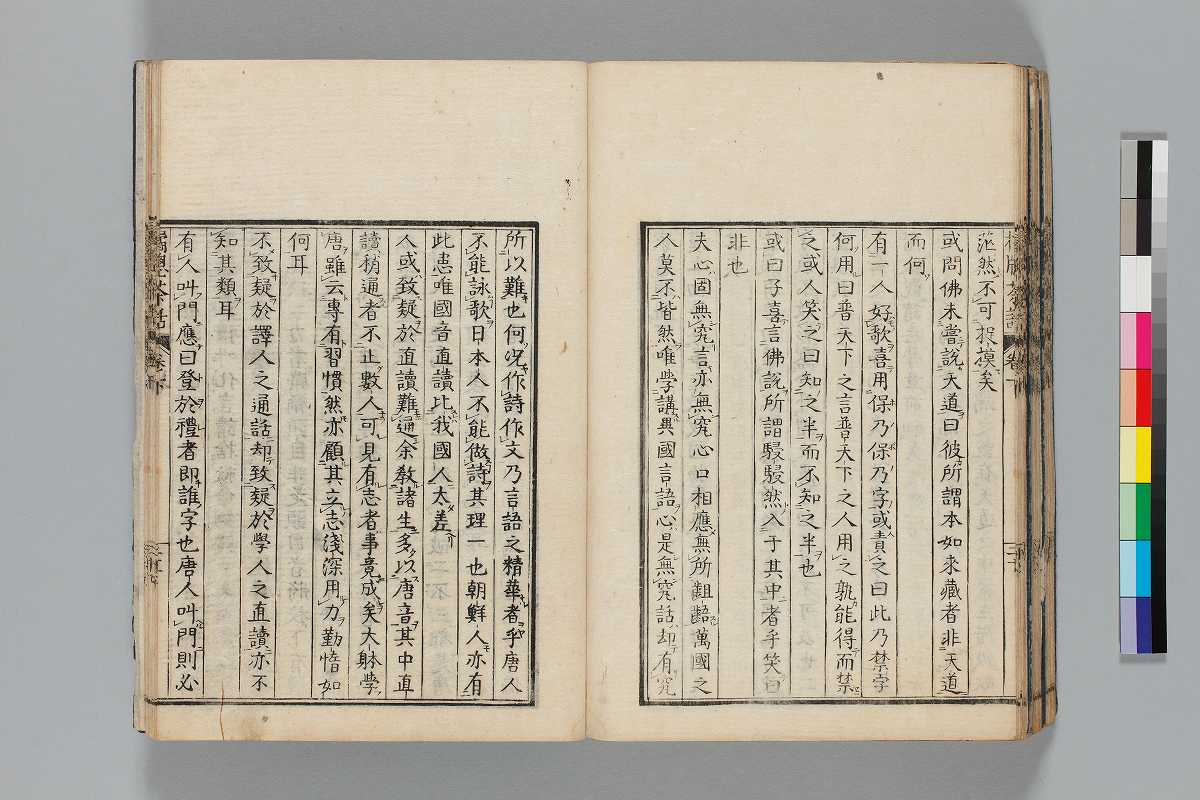 茫然不可捉摸矣
或問佛未嘗說天道曰彼所謂本如來藏者非天道
而何
有一人好歌喜用保乃保乃字或責之曰此乃禁字
何用曰普天下之言普天下之人用之孰能得而禁
之或人笑之曰知之半而不知之半也
或曰子喜言佛說所謂駸駸然入于其中者乎笑曰
非也
夫心固無究言亦無究心口相應無所齟齬萬國之
人莫不皆然唯學講異國言語心是無究話却有究
所以難也何況作詩作文乃言語之精華者乎唐人
不能詠歌日本人不能做詩其理一也朝鮮人亦有
此患唯國音直讀比我國人太差
人或致疑於直讀難通余教諸生多以唐音其中直
讀稍通者不止數人可見有志者事竟成矣大躰學
唐雖云專有習慣然亦顧其立志淺深用力勤惰如
何耳
不致疑於譯人之通話却致疑於學人之直讀亦不
知其類耳
有人叫門應曰登於禮者即誰字也唐人叫門則必
卷下